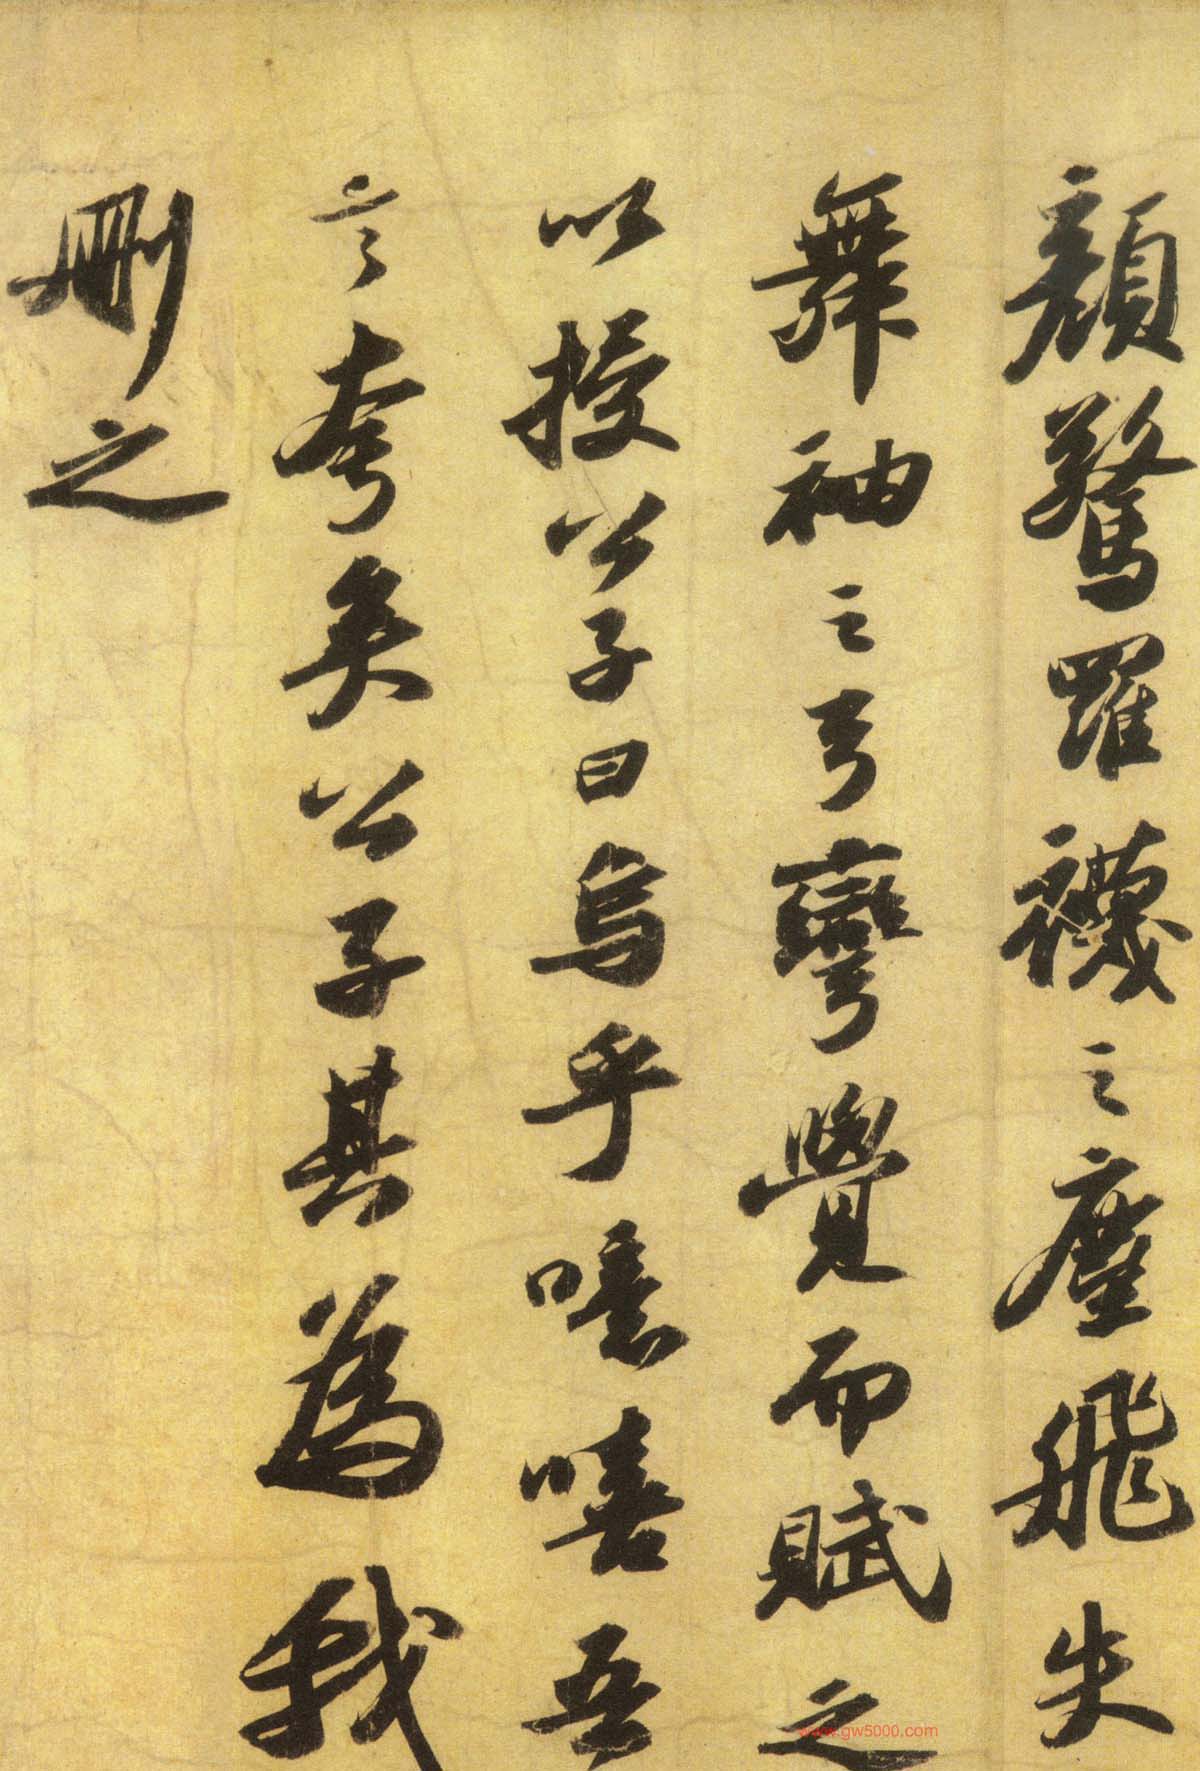 顏驚羅襪之塵飛失
舞袖之弓彎覺而賦之
以授公子曰烏乎噫嘻吾
言夸矣公子其為我
刪之
www.gw5000.com